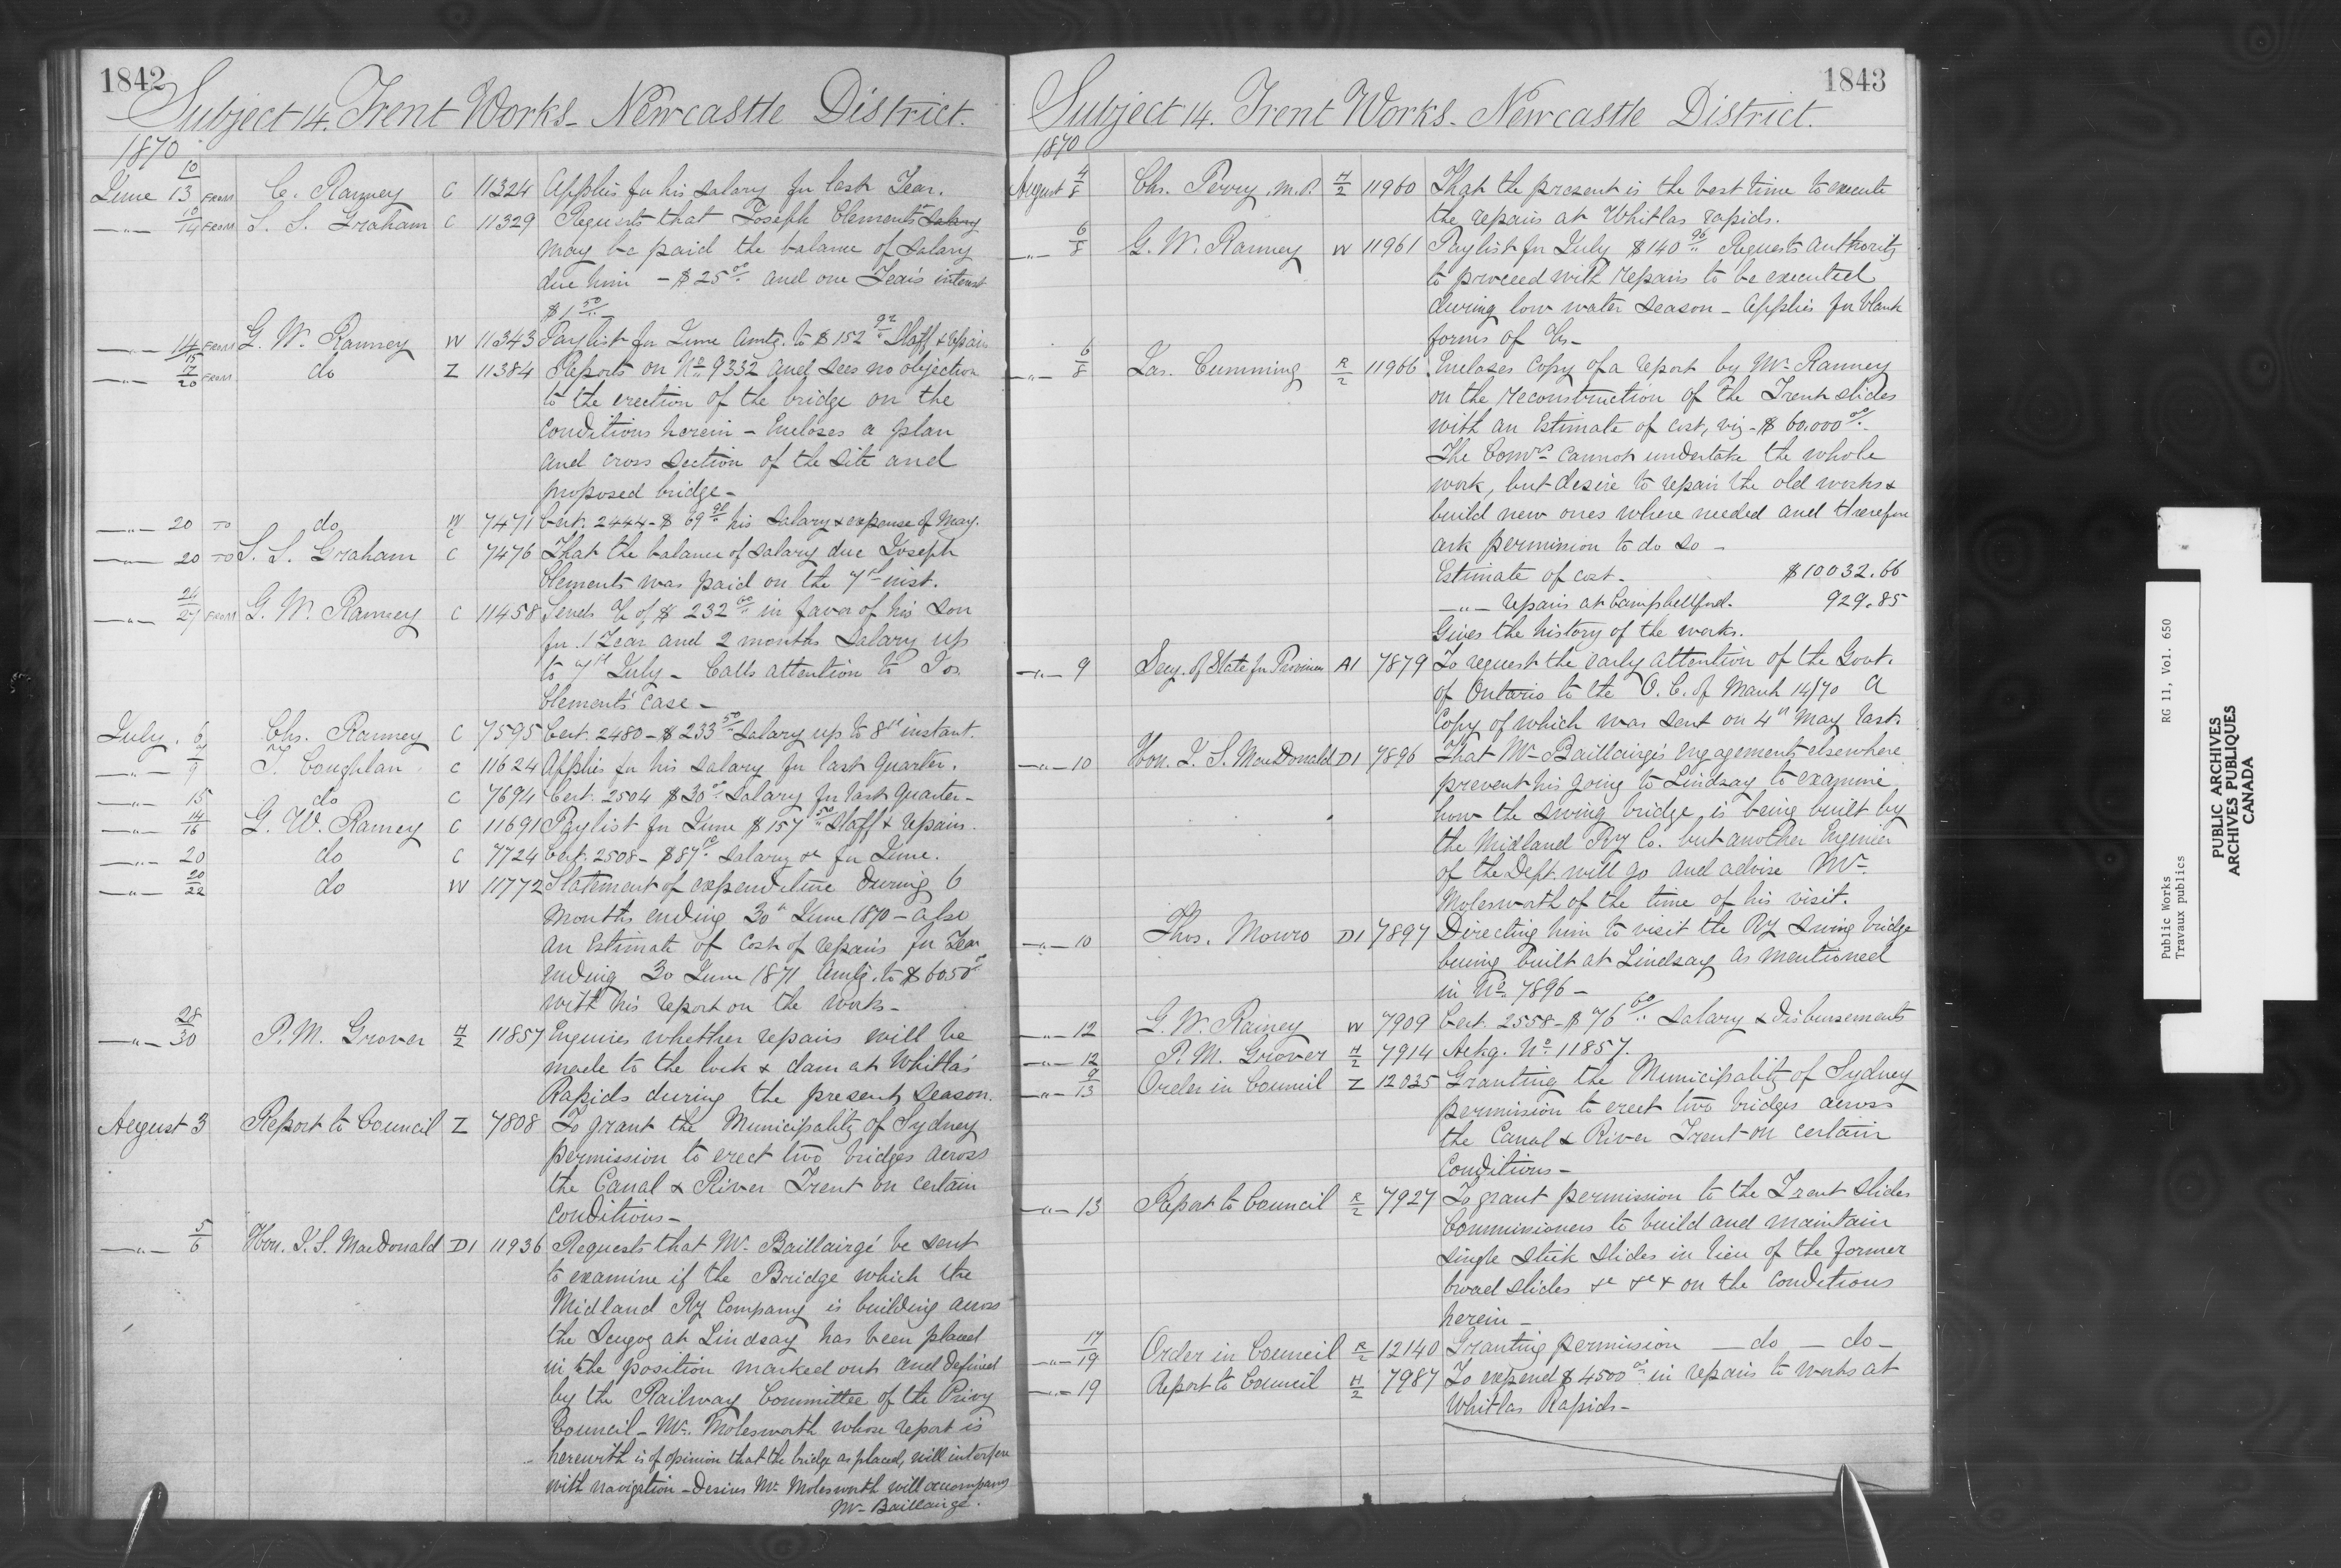 1842
Subject 14. Trent Works - Newcastle District.
1870
June 10/13 FROM C. Ranney C 11324 Applies for his salary for last Year.
—"— 10/14 FROM S. S. Graham C 11329 Requests that Joseph Clements' salary
may be paid the balance of salary
due him - $25.00 and one Year's interest
$1.50
—"— 14/15 FROM G. W. Ranney W 11343 Paylist for June amtg. to $152.92 Staff & repairs
—"— 17/20 FROM do Z 11384 Reports on No. 9332 and sees no objection
to the erection of the bridge on the
conditions herein - Encloses a plan
and cross section of the site and
proposed bridge -
—"— 20 TO do 7471 Cert. 2444 - $69.98 his salary & expense of May.
—"— 20 TO S. S. Graham C 7476 That the balance of salary due Joseph
Clements was paid on the 7th inst.
—"— 24/27 FROM G. W. Ranney C 11458 Sends a/c of $232.00 in favor of his son
for 1 Year and 2 months salary up
to 7th July - Calls attention to Jos.
Clements' case -
July. 6 Chs. Ranney C 7595 Cert. 2480 - $233.50 Salary up to 8th instant.
—"— 7/9 T. Coughlan C 11624 Applies for his salary for last quarter.
—"— 15 do C 7694 Cert. 2504 $30.00 Salary for last Quarter -
—"— 14/16 G. W. Ranney C 11691 Paylist for June $157.50 Staff & repairs.
—"— 20 do C 7724 Cert. 2508 - $87. salary &c for June.
—"— 20/22 do W 11772 Statement of expenditure during 6
months ending 30th June 1870 - also
an Estimate of cost of repairs for Year
ending 30 June 1871 amtg. to $6050.00
with his report on the works -
—"— 28/30 P. M. Grover H/2 11857 Enquires whether repairs will be
made to the lock & dam at Whitla's
Rapids during the present season.
August 3 Report to Council Z 7808 To grant the Municipality of Sydney
permission to erect two bridges across
the Canal & River Trent on certain
conditions -
—"— 5/6 Hon. J. S. MacDonald D1 11936 Requests that Mr. Baillairgé be sent
to examine if the Bridge which the
Midland Ry Company is building across
the Scugog at Lindsay has been placed
in the position marked out and defined
by the Railway Committee of the Privy
Council - Mr. Molesworth whose report is
herewith is of opinion that the bridge as placed, will interfere
with navigation - Desires Mr. Molesworth will accompany
Mr. Baillairgé.
1843
Subject 14. Trent Works - Newcastle District.
1870
August 4/8 Chs. Perry, M.P. H/2 11960 That the present is the best time to execute
the repairs at Whitlas rapids.
—"— 6/8 G. W. Ranney W 11961 Paylist for July $140.96 Requests authority
to proceed with repairs to be executed
during low water season - Applies for blank
forms of a/cs -
—"— 6/8 Jas. Cumming R/2 11966 Encloses copy of a report by Mr. Ranney
on the reconstruction of the Trent slides
with an Estimate of cost, viz - $60.000.00 -
The Comrs. cannot undertake the whole
work, but desire to repair the old works &
build new ones where needed and therefore
ask permission to do so -
Estimate of cost - $10032.66
—"— repairs at Campbellford. 929.85
Gives the history of the works.
—"— 9 Secy. of State for Provinces A1 7879 To request the early attention of the Govt.
of Ontario to the O. C. of March 14/70 a
copy of which was sent on 4th May last.
—"— 10 Hon. J. S. MacDonald D1 7896 That Mr. Baillairgé's engagements elsewhere
prevent his going to Lindsay to examine
how the swing bridge is being built by
the Midland Ry Co. but another Engineer
of the Dept. will go and advise Mr.
Molesworth of the time of his visit.
—"— 10 Thos. Monro D1 7897 Directing him to visit the Ry swing bridge
being built at Lindsay as mentioned
in No. 7896 -
—"— 12 G. W. Rainey W 7909 Cert. 2558 - $76.60 salary & disbursements
—"— 12 P. M. Grover H/2 7914 Ackg. No. 11857.
—"— 9/13 Order in Council Z 12035 Granting the Municipality of Sydney
permission to erect two bridges across
the Canal & River Trent on certain
conditions -
—"— 13 Report to Council R/2 7927 To grant permission to the Trent slides
Commissioners to build and maintain
single stick slides in lieu of the former
broad slides &c &c & on the conditions
herein -
—"— 17/19 Order in Council R/2 12140 Granting permission — do — do —
—"— 19 Report to Council H/2 7987 To expend $4500.00 in repairs to works at
Whitlas Rapids -
Public Works RG 11, Vol. 650
Travaux publics
PUBLIC ARCHIVES
ARCHIVES PUBLIQUES
CANADA